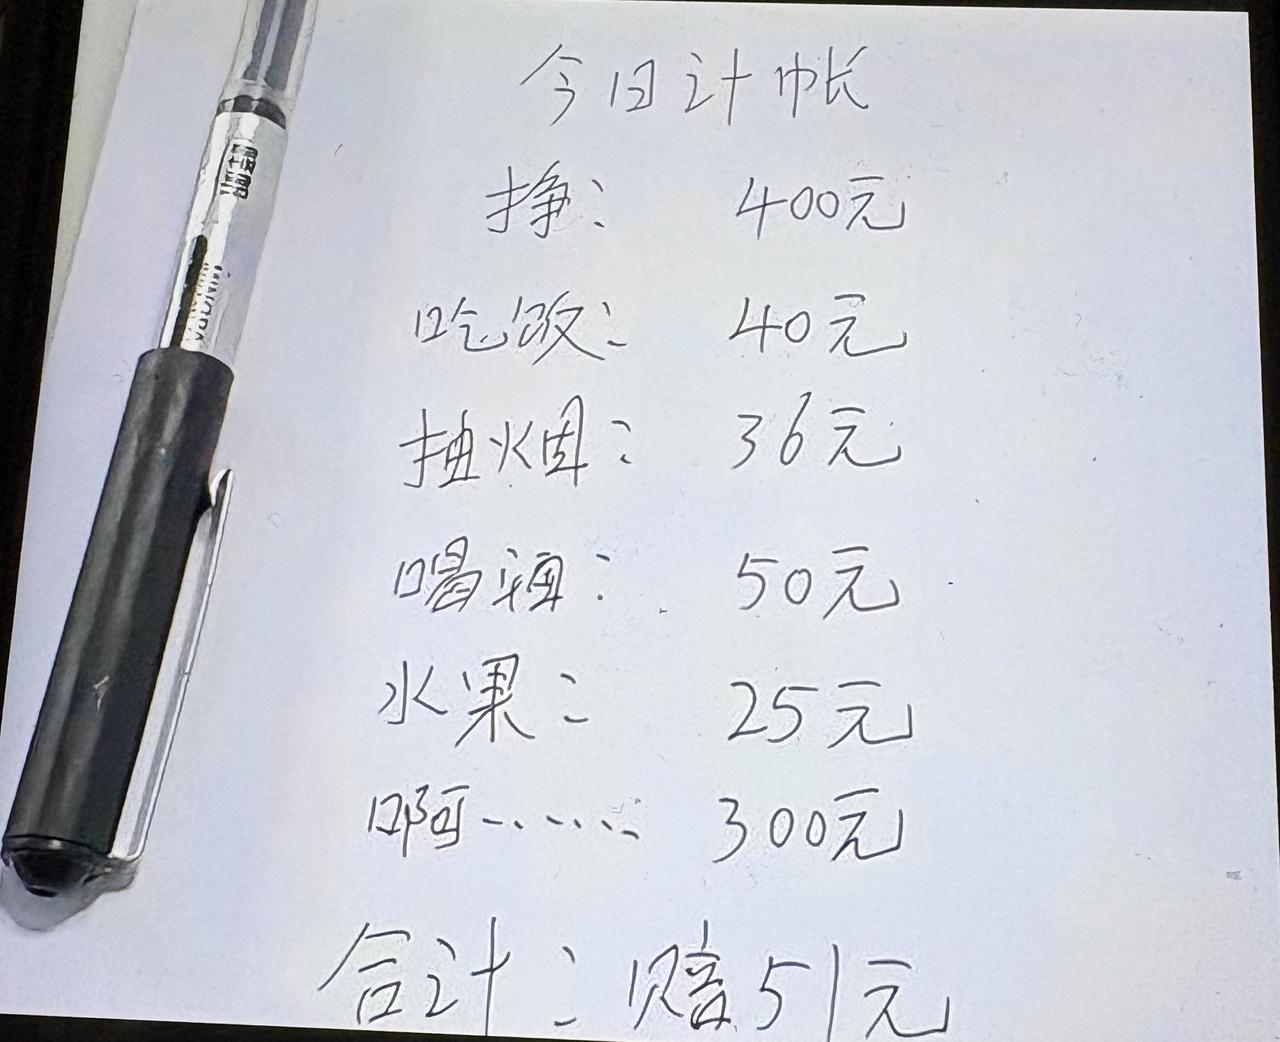 今日计帐
挣: 400元
吃饭: 40元
抽烟: 36元
喝酒: 50元
水果: 25元
啊…… 300元
合计: 赔51元